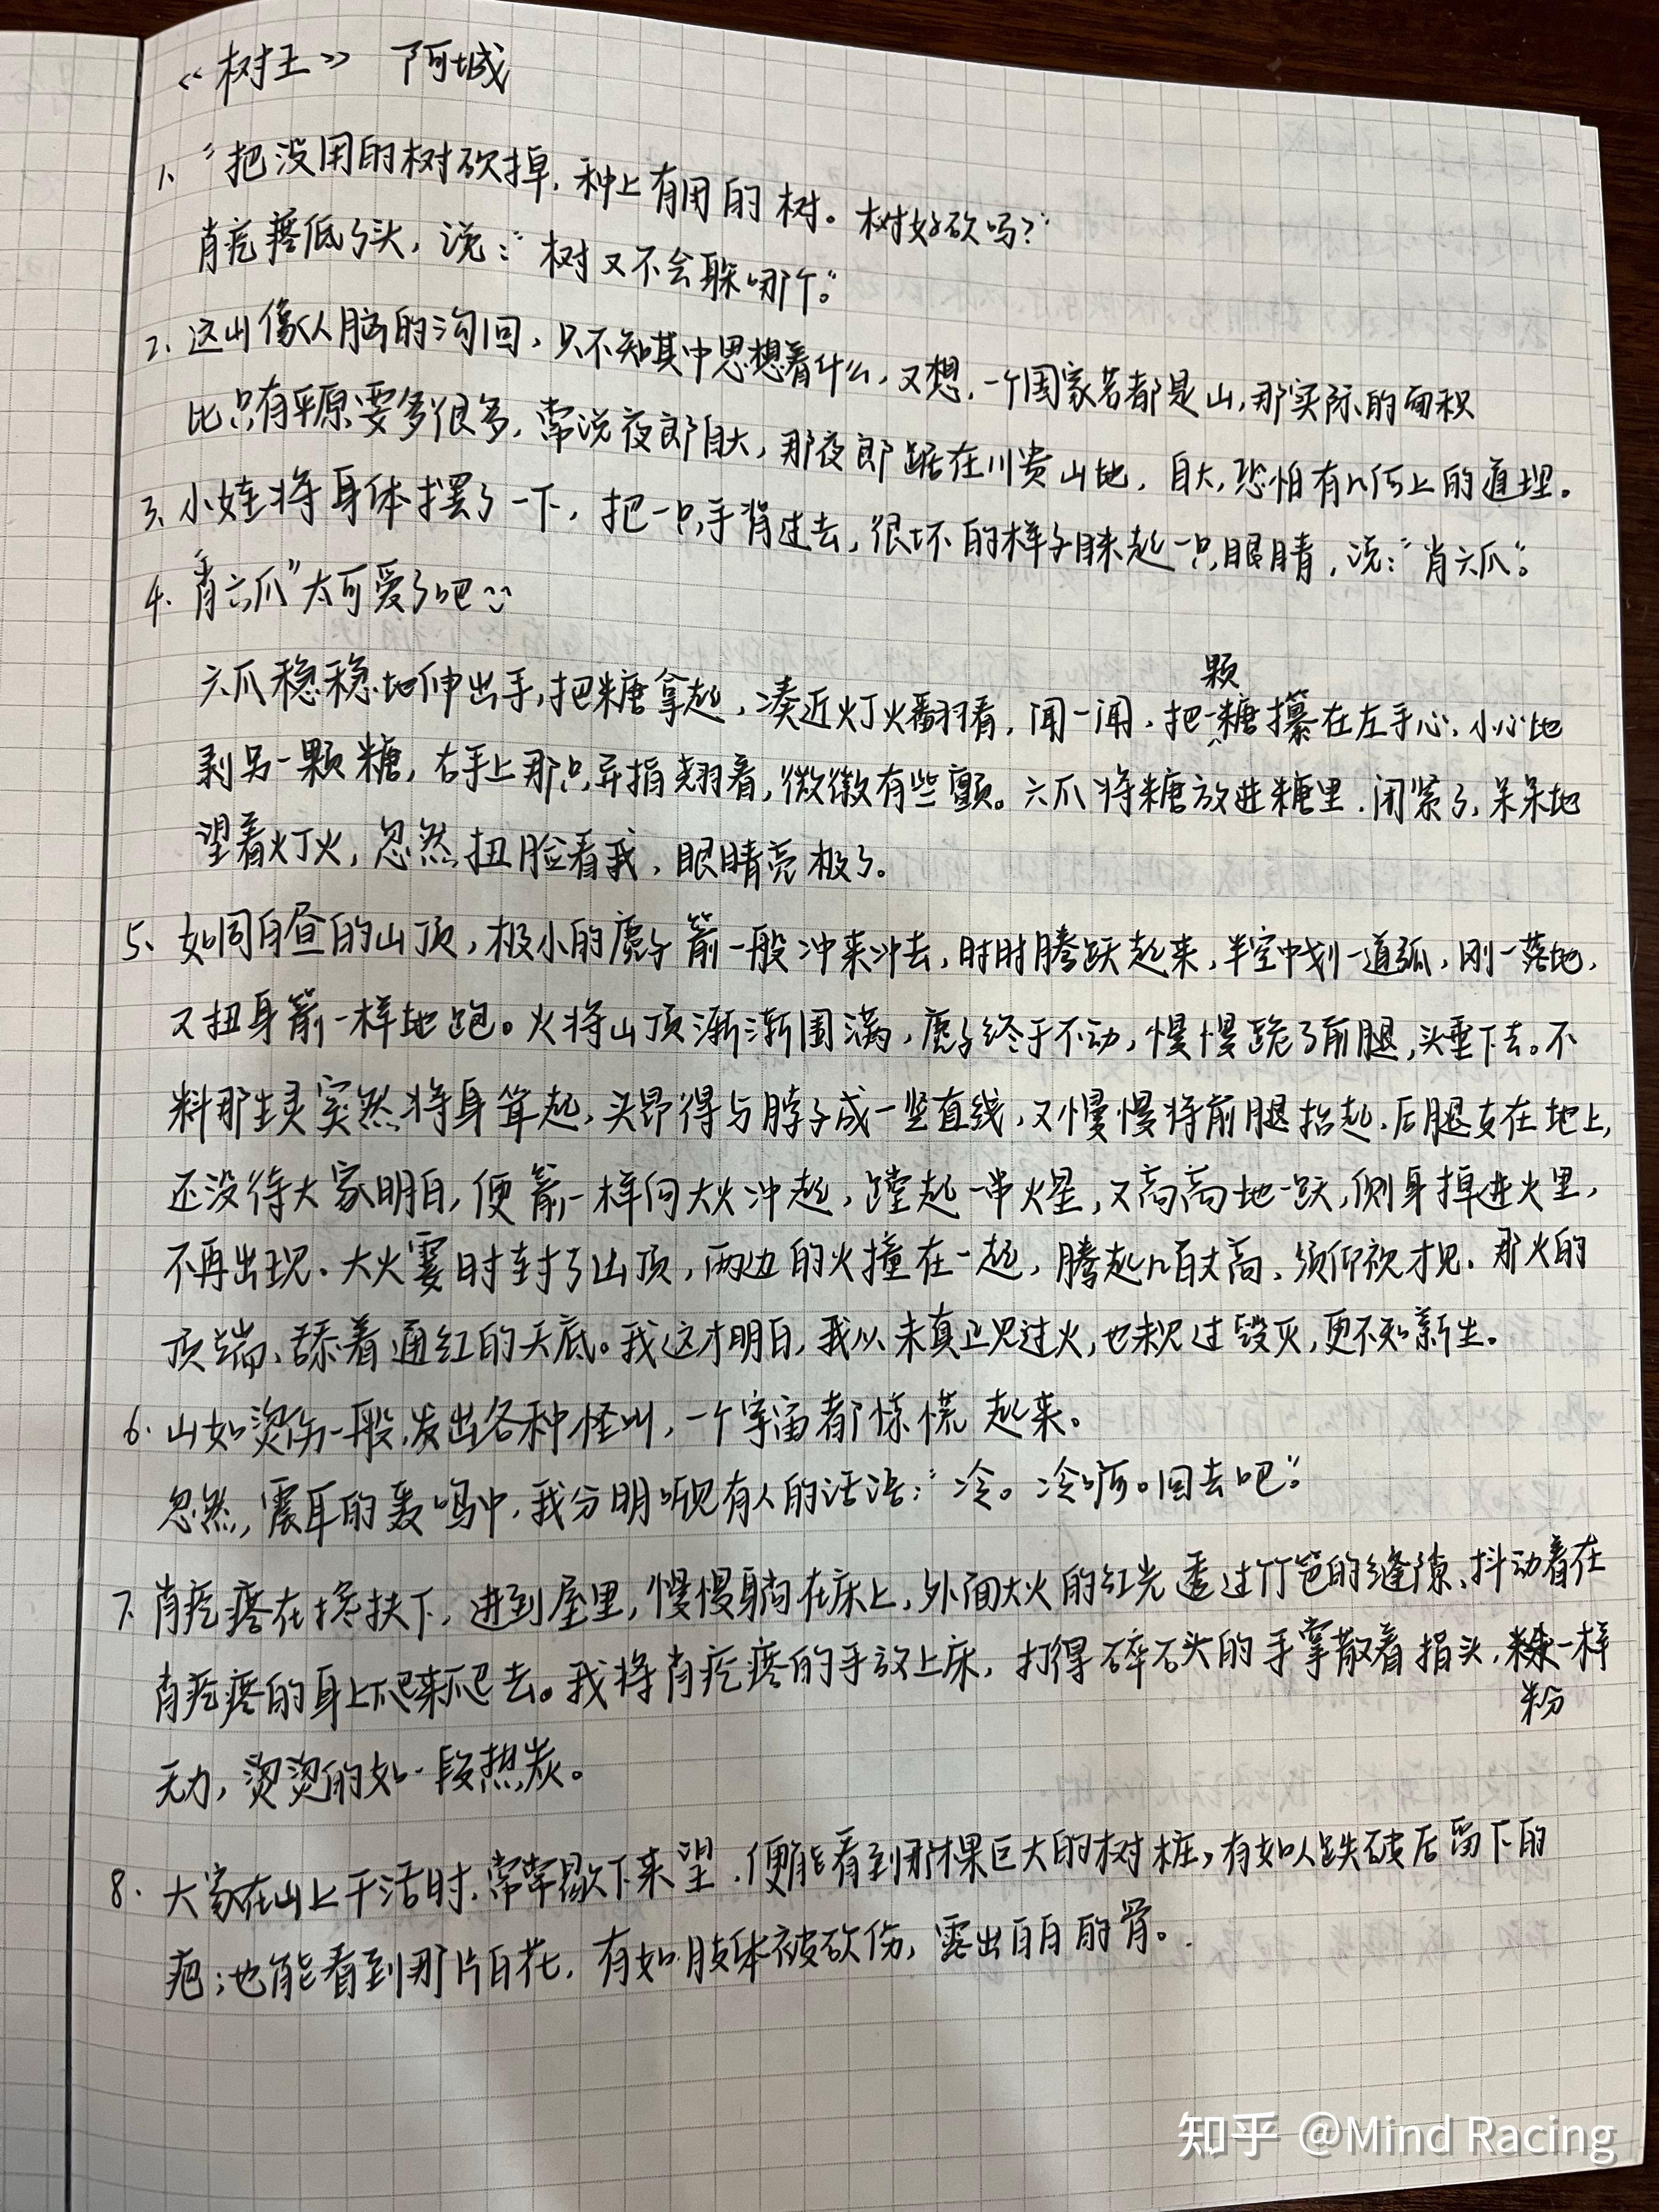 《树王》 阿城
1、“把没用的树砍掉,种上有用的树。树好砍吗?”
肖疙瘩低了头,说:“树又不会躲哪个。”
2、这山像人脑的沟回,只不知其中思想着什么,又想,一个国家若都是山,那实际的面积
比只有平原要多很多,常说夜郎自大,那夜郎踞在川贵山地,自大,恐怕有几何上的道理。
3、小娃将身体摆了一下,把一只手背过去,很坏的样子眯起一只眼睛,说:“肖六爪”。
4、“肖六爪”太可爱了吧
六爪稳稳地伸出手,把糖拿起,凑近灯火翻看,闻一闻,把一颗糖攥在左手心,小心地
剥另一颗糖,右手上那只异指翘着,微微有些颤。六爪将糖放进糖里,闭紧了,呆呆地
望着灯火,忽然扭脸看我,眼睛亮极了。
5、如同白昼的山顶,极小的麂子箭一般冲来冲去,时时腾跃起来,半空中划一道弧,刚一落地,
又扭身箭一样地跑。火将山顶渐渐围满,麂子终于不动,慢慢跪了前腿,头垂下去。不
料那生灵突然将身耸起,头昂得与脖子成一竖直线,又慢慢将前腿抬起,后腿支在地上,
还没待大家明白,便箭一样向大火冲起,蹚起一串火星,又高高地一跃,侧身掉进火里,
不再出现。大火霎时封了山顶,两边的火撞在一起,腾起几百丈高,须仰视才见。那火的
顶端,舔着通红的天底。我这才明白,我从未真正见过火,也未见过毁灭,更不知新生。
6、山如烫伤一般,发出各种怪叫,一个宇宙都惊慌起来。
忽然,震耳的轰鸣中,我分明听见有人的话语:“冷。冷啊。回去吧”。
7、肖疙瘩在搀扶下,进到屋里,慢慢躺在床上,外面大火的红光透过竹笆的缝隙,抖动着在
肖疙瘩的身上爬来爬去。我将肖疙瘩的手放上床,打得碎石头的手掌散着指头,粉一样
无力,烫烫的如一段热炭。
8、大家在山上干活时,常常歇下来望,便能看到那棵巨大的树桩,有如人跌破后留下的
疤;也能看到那片白花,有如肢体被砍伤,露出白白的骨。
知乎 @Mind Racing